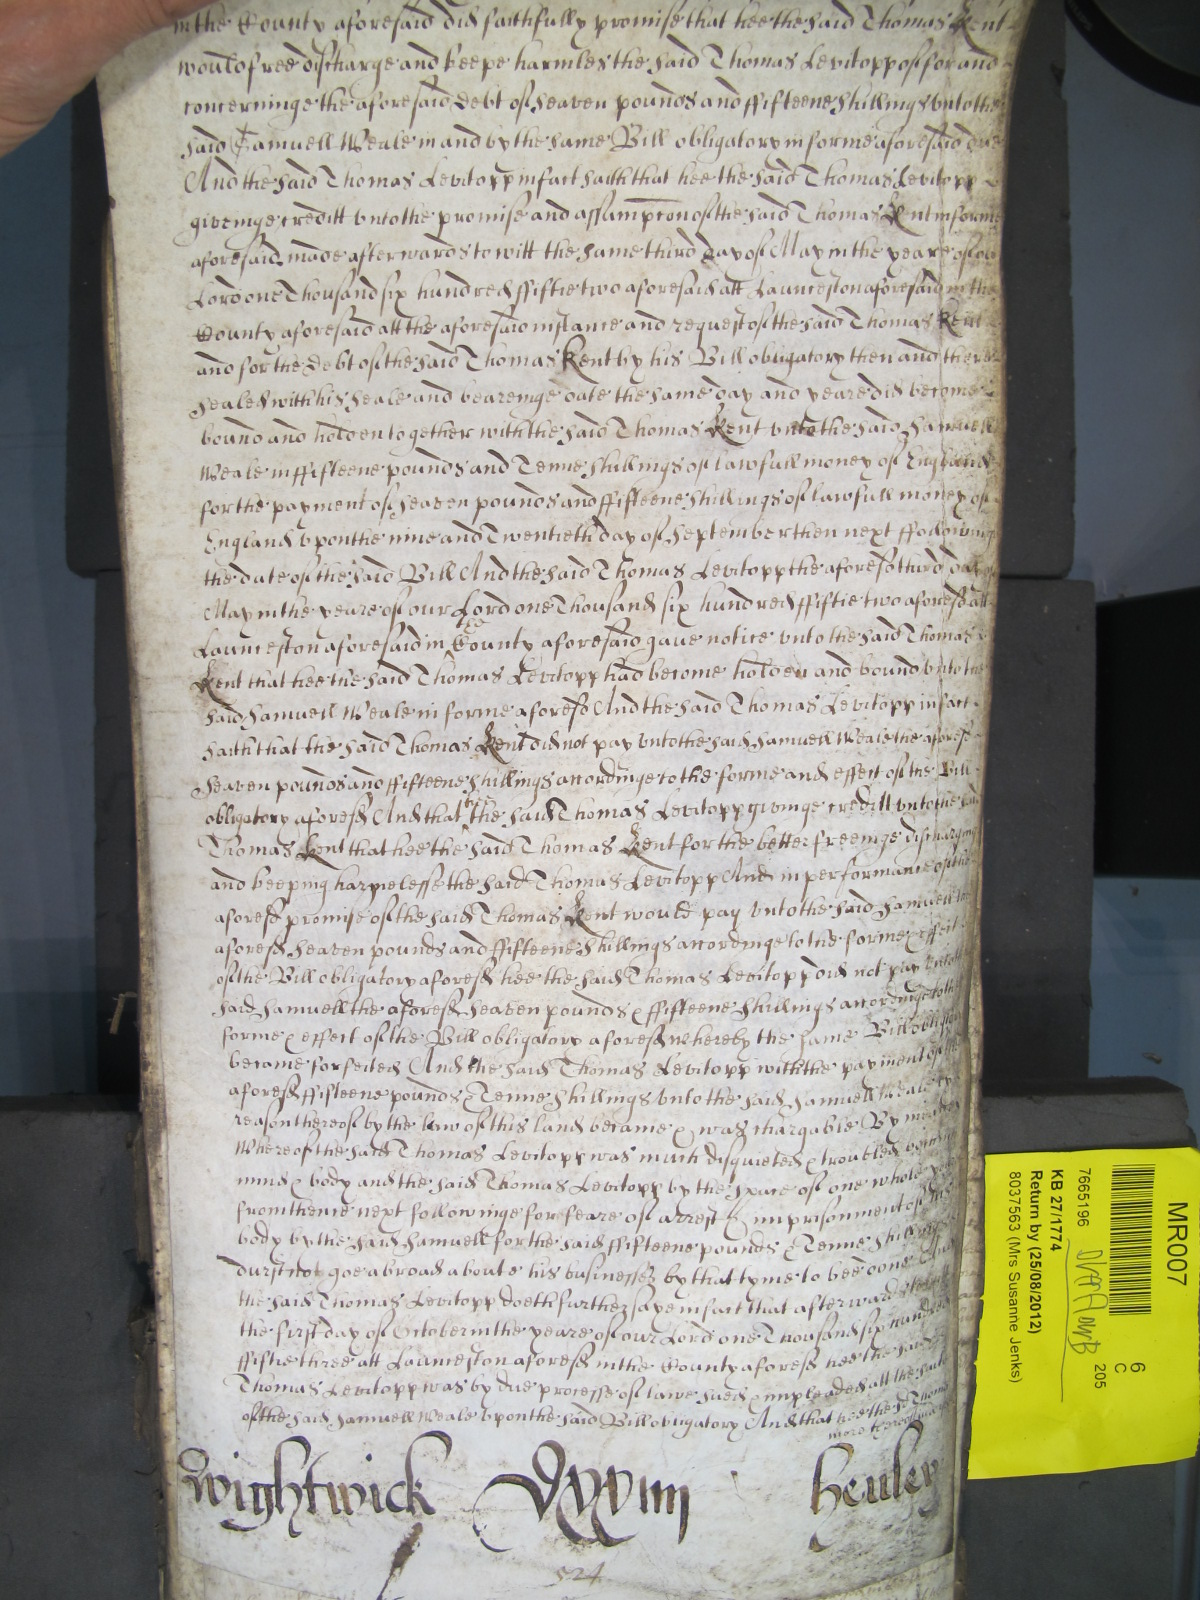 in the County aforesaid did faithfully promise that hee the said Thomas Kent
would free discharge and keepe harmles the said Thomas Levitopp of for and
concerninge the aforesaid debt of seaven pounds and ffifteene shillings unto the
said Samuell Weale in and by the same Bill obligatory in forme aforesaid due
And the said Thomas Levitopp in fact saith that hee the said Thomas Levitopp
givinge creditt unto the promise and assumpcon of the said Thomas Kent in forme
aforesaid made afterwards to witt the same third day of May in the yeare of our
Lord one Thousand six hundred ffiftie two aforesaid att Launceston aforesaid in the
County aforesaid att the aforesaid instance and request of the said Thomas Kent
and for the debt of the said Thomas Kent by his Bill obligatory then and there
sealed with his seale and bearinge date the same day and yeare did become
bound and holden together with the said Thomas Kent unto the said Samuell
Weale in ffifteene pounds and Tenne shillings of lawfull money of England
for the payment of seaven pounds and ffifteene shillings of lawfull money of
England upon the nine and Twentieth day of September then next ffollowinge
the date of the said Bill And the said Thomas Levitopp the aforesd third day of
May in the yeare of our Lord one Thousand six hundred ffiftie two aforesd att
Launceston aforesaid in the County aforesaid gave notice unto the said Thomas
Kent that hee the said Thomas Levitopp had become holden and bound unto the
said Samuell Weale in forme aforesd And the said Thomas Levitopp in fact
saith that the said Thomas Kent did not pay unto the said Samuell Weale the aforesd
seaven pounds and ffifteene shillings accordinge to the forme and effect of the Bill
obligatory aforesd And that hee the said Thomas Levitopp givinge creditt unto the said
Thomas Kent that hee the said Thomas Kent for the better freeinge discharging
and keeping harmelesse the said Thomas Levitopp And in performance of the
aforesd promise of the said Thomas Kent would pay unto the said Samuell the
aforesd seaven pounds and ffifteene shillings accordinge to the forme & effect
of the Bill obligatory aforesd hee the said Thomas Levitopp did not pay unto the
said Samuell the aforesd seaven pounds & ffifteene shillings accordinge to the
forme & effect of the Bill obligatory aforesd whereby the same Bill obligatory
became forfeited And the said Thomas Levitopp with the payment of the
aforesd ffifteene pounds & Tenne shillings unto the said Samuell Weale by
reason thereof by the law of this land became & was chargable By meanes
Whereof the said Thomas Levitopp was much disquieted & troubled both in
mind & body and the said Thomas Levitopp by the space of one whole yeare
from thence next followinge for feare of arrest & imprisonment of his
body by the said Samuell for the said ffifteene pounds & Tenne shillings
durst not goe abroad about his businesses by that tyme to bee done And
the said Thomas Levitopp doeth further saye in fact that afterwards to witt
the first day of October in the yeare of our Lord one Thousand six hundred
ffiftie three att Launceston aforesd in the County aforesd hee the said
Thomas Levitopp was by due processe of lawe sued & impleaded att the suite
of the said Samuell Weale upon the said Bill obligatory And that hee the sd Thomas
Wightwick Dxxiiii Henley
524
MR007
6
C
205
7665196
KB 27/1774
Return by (25/08/2012)
8037563 (Mrs Susanne Jenks)